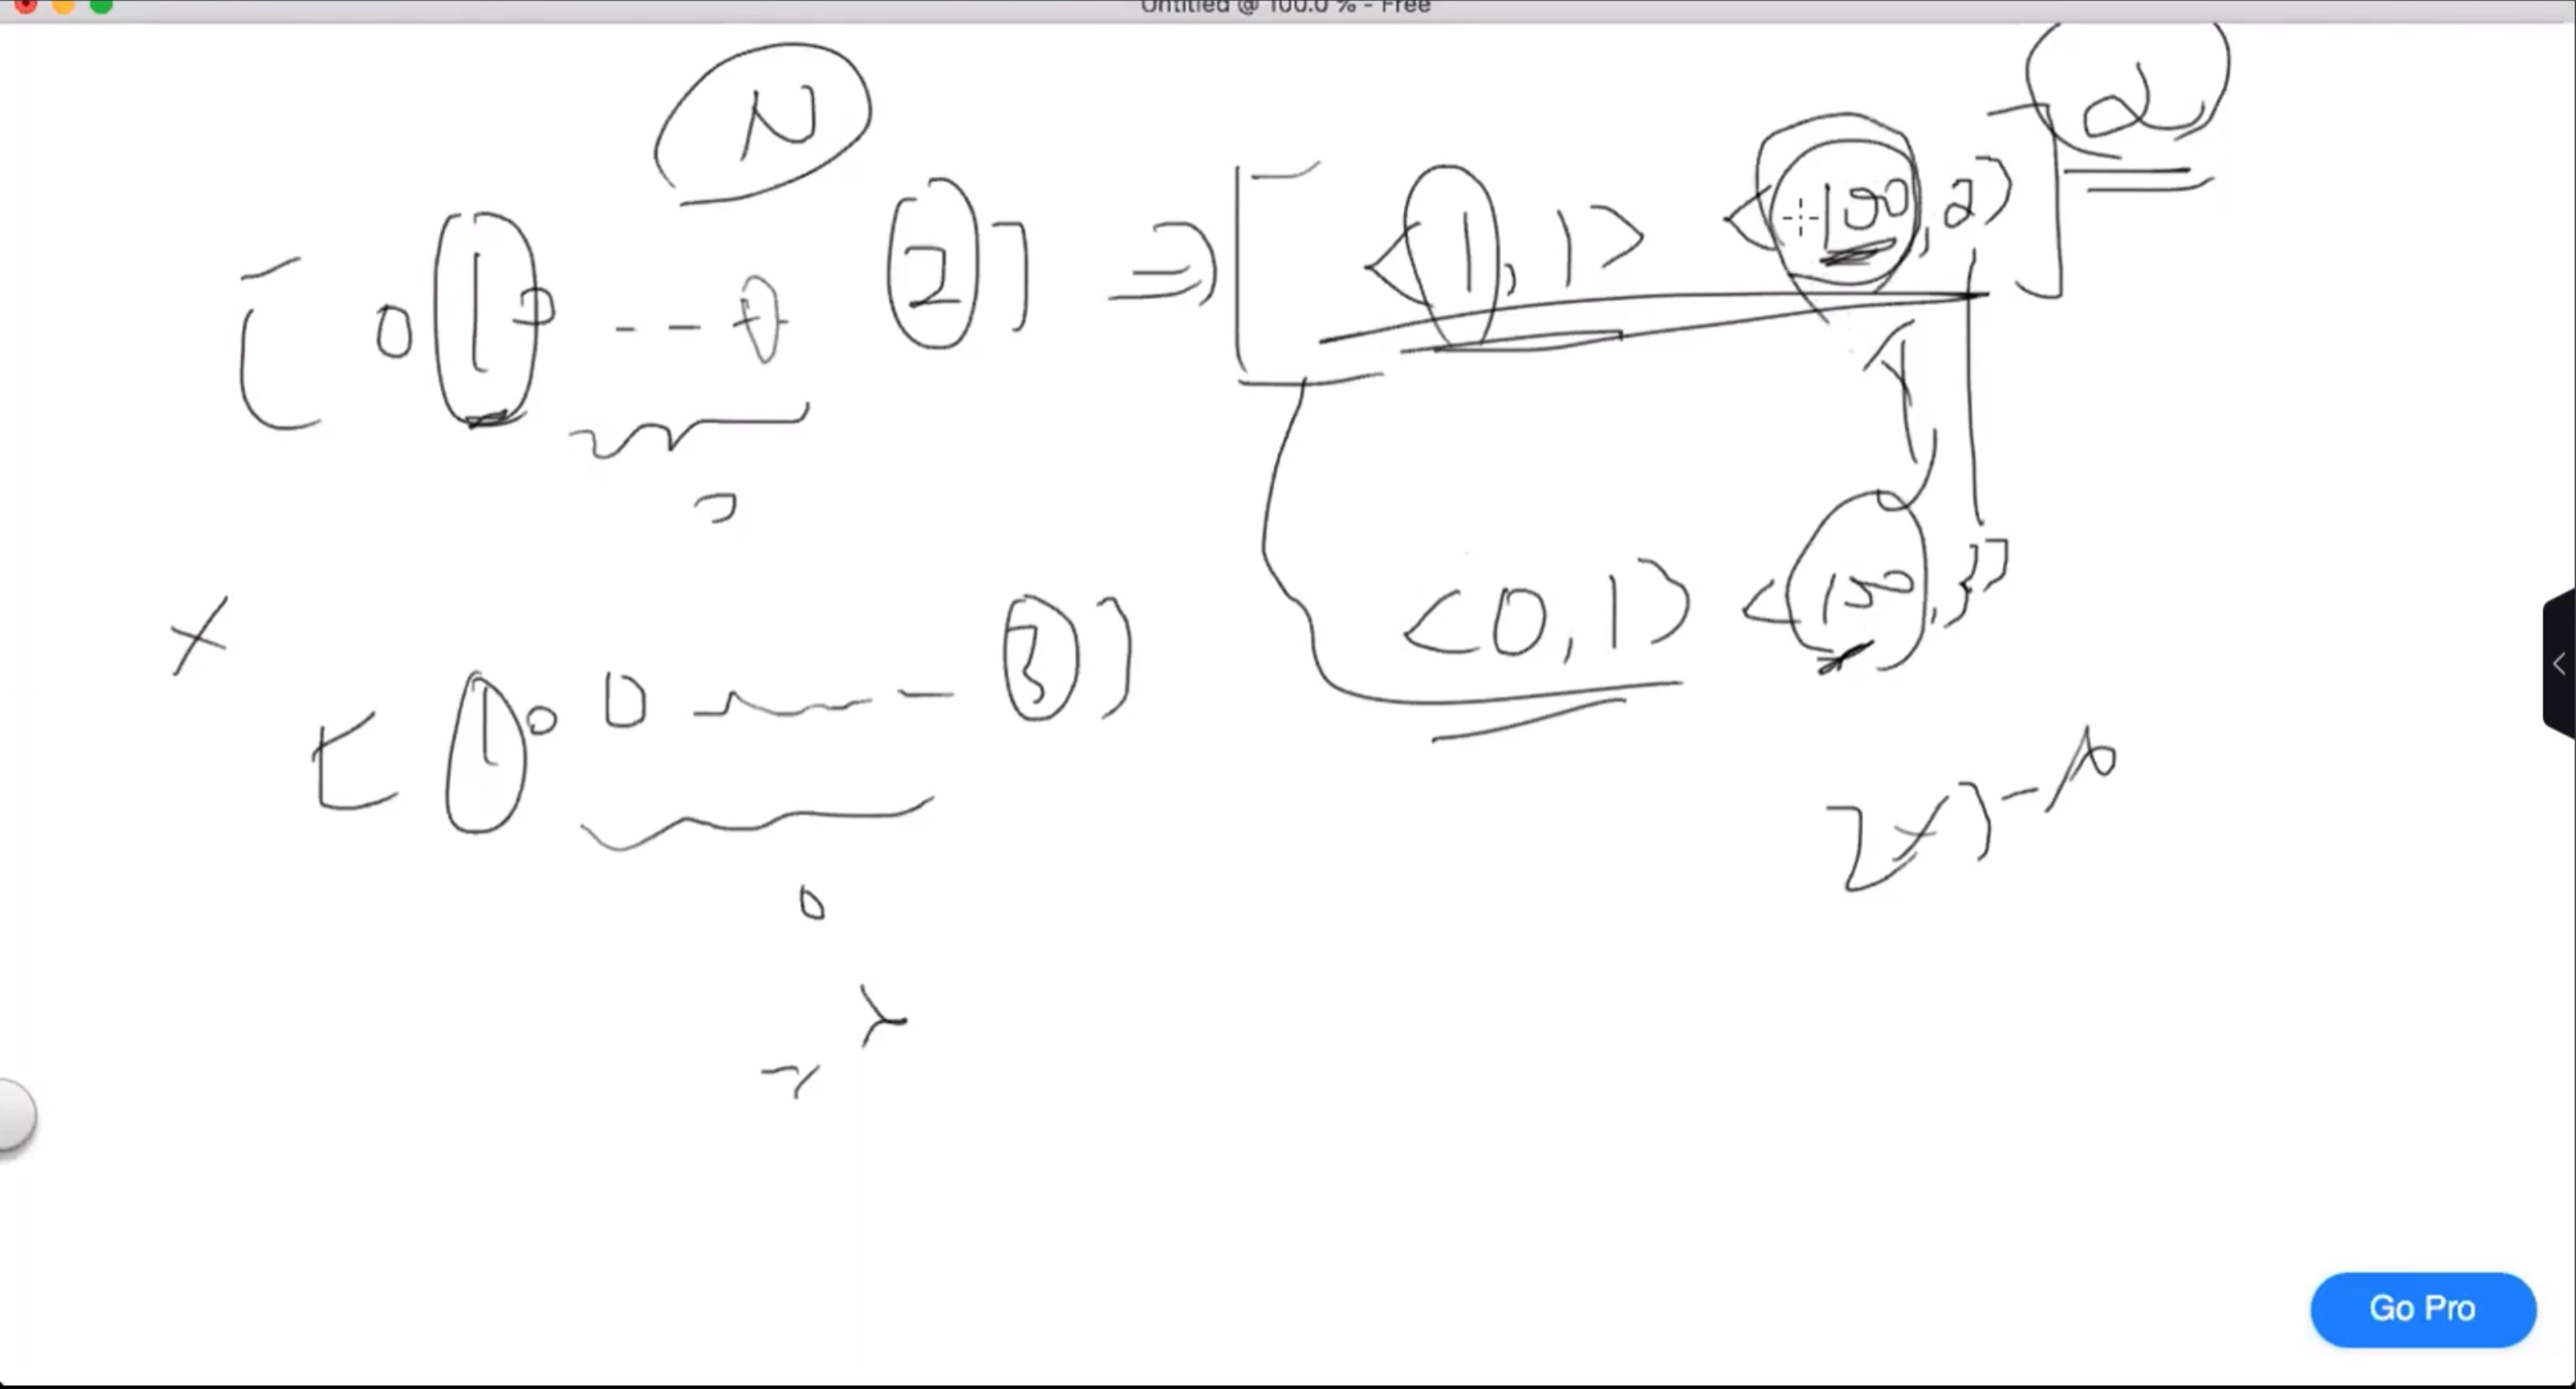 Untitled @ 100.0 % - Free
N
[ 0 1 0 - - 0 2 ] => [ <1, 1> <100, 2> ] 2
0
x
[ 1 0 0 - 3 ]
<0, 1> <150, 3>
0
Go Pro